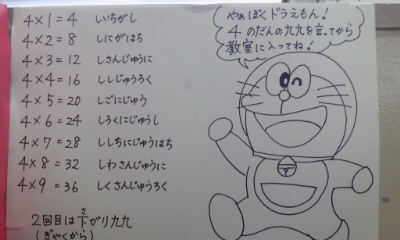 4×1=4 しいちがし
4×2=8 しにがはち
4×3=12 しさんじゅうに
4×4=16 ししじゅうろく
4×5=20 しごにじゅう
4×6=24 しろくにじゅうし
4×7=28 ししちにじゅうはち
4×8=32 しわさんじゅうに
4×9=36 しくさんじゅうろく
2回目は下がり九九
(ぎゃくから)
やぁぼくドラえもん!
4のだんの九九を言ってから
教室に入ってね!